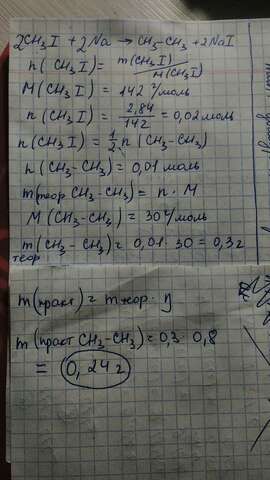 2CH₃I + 2Na → CH₃-CH₃ + 2NaI
n(CH₃I) = m(CH₃I) / M(CH₃I)
M(CH₃I) = 142 г/моль
n(CH₃I) = 2,84 / 142 = 0,02 моль
n(CH₃I) = 1/2 n(CH₃-CH₃)
n(CH₃-CH₃) = 0,01 моль
m(теор CH₃-CH₃) = n · M
M(CH₃-CH₃) = 30 г/моль
m(CH₃-CH₃) = 0,01 · 30 = 0,3 г
теор
m(практ) = mтеор · η
m(практ CH₃-CH₃) = 0,3 · 0,8
= 0,24 г